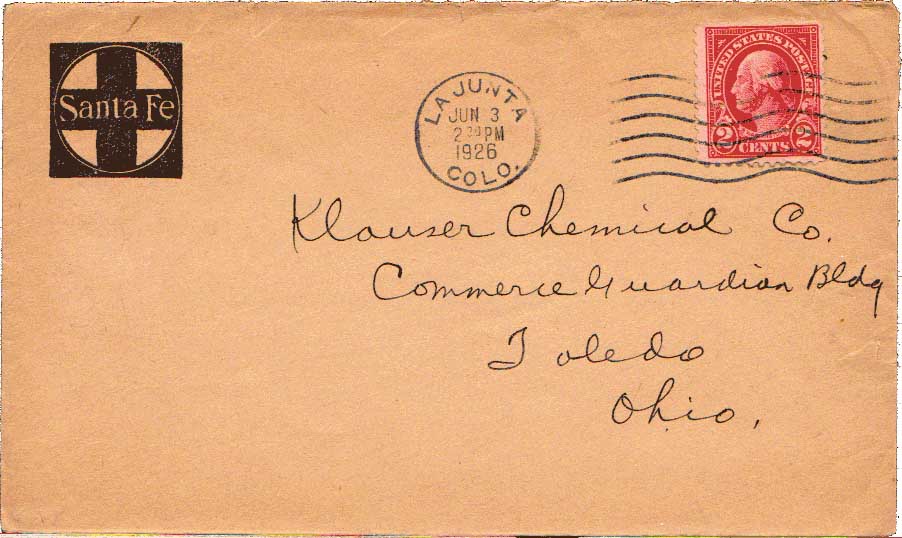 Santa Fe
LA JUNTA
JUN 3
2 30 PM
1926
COLO.
UNITED STATES POSTAGE
2 CENTS 2
Klauser Chemical Co.
Commerce Guardian Bldg
Toledo
Ohio.